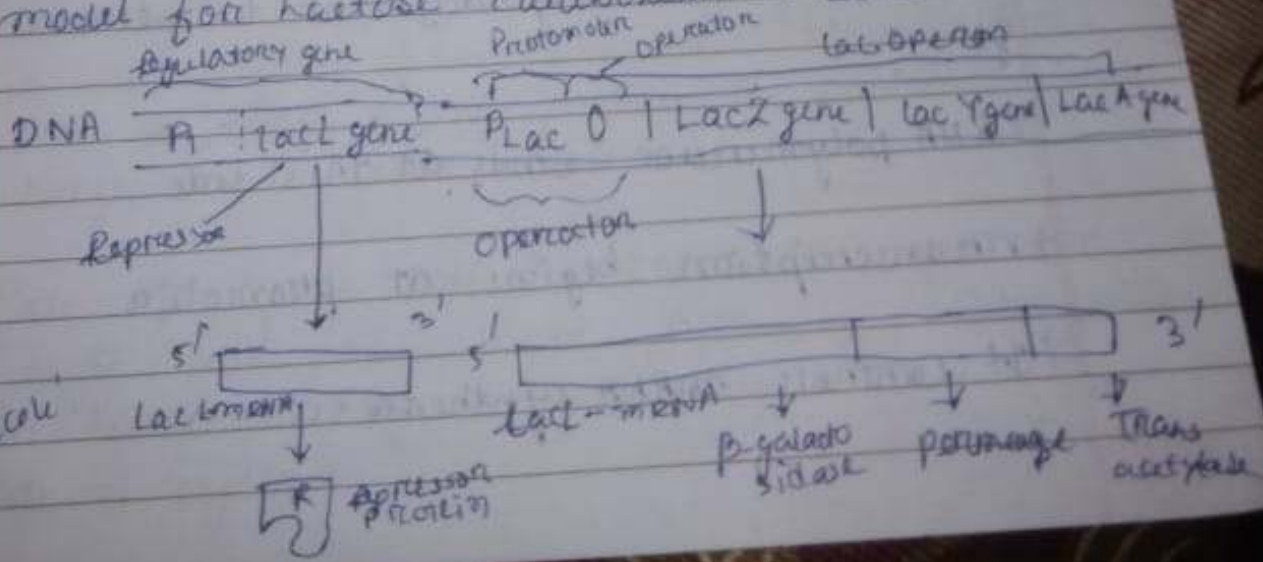 model for Lactose
Regulatory gene Promotour operator Lac operon
DNA P1 LacI gene PLac O | LacZ gene | Lac Y gene | Lac A gene
Repressor operator
5' 3' 5' 3'
LacI-mRNA LacI-mRNA β-galacto sidase permease Trans acetylase
R Repressor
protein